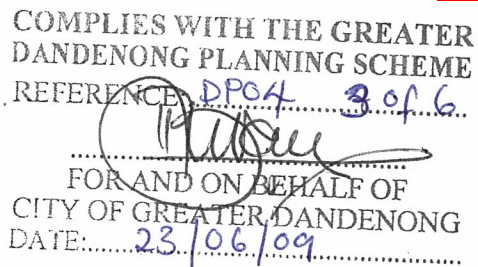 COMPLIES WITH THE GREATER
DANDENONG PLANNING SCHEME
REFERENCE: DPO4 3 of 6
FOR AND ON BEHALF OF
CITY OF GREATER DANDENONG
DATE: 23/06/09